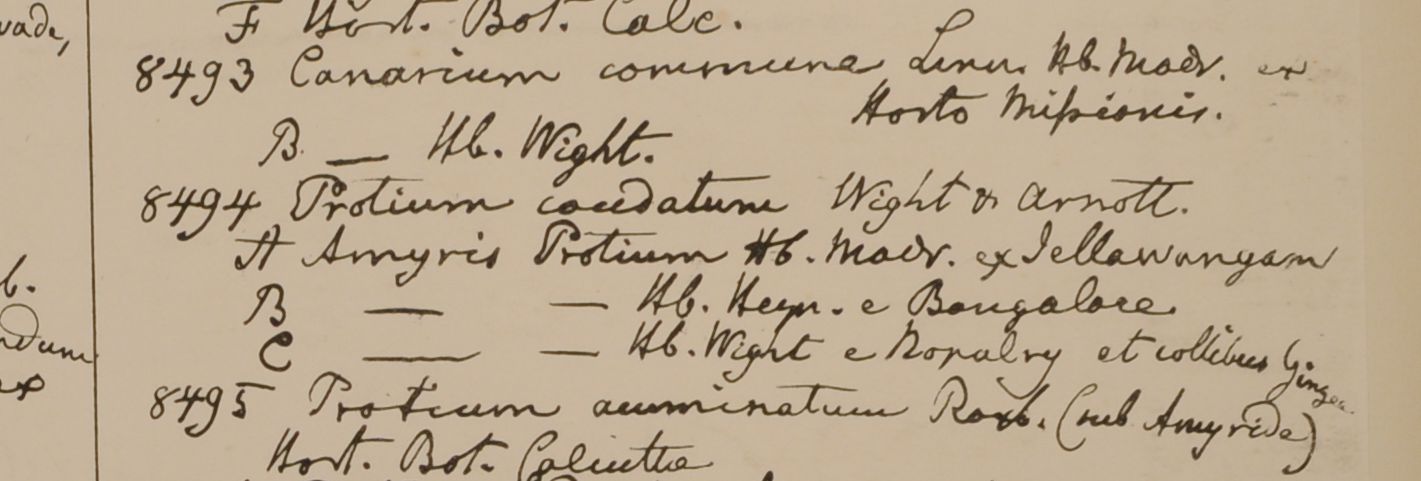 vade,
F Hort. Bot. Calc.
8493 Canarium commune Linn. Hb. Madr. ex
Horto Mißionis.
B — Hb. Wight.
8494 Protium caudatum Wight & Arnott.
A Amyris Protium Hb. Madr. ex
b.
B — — Hb. Heyn. e Bangalore
ndum
C — — Hb. Wight e et collibus Gingee
ex
8495 Protium acuminatum Roxb. (sub Amyride)
Hort. Bot. Calcutta